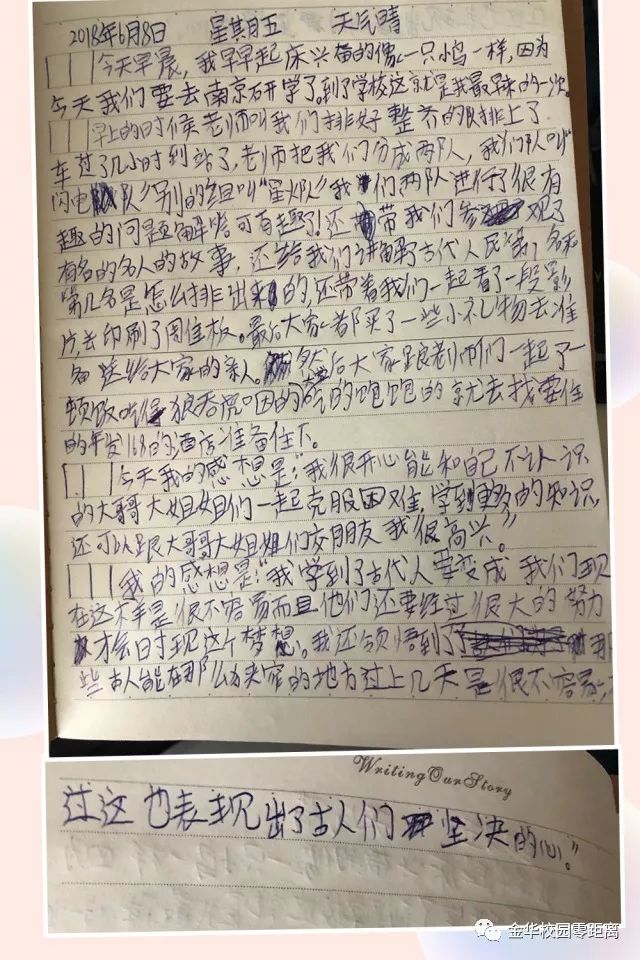 2018年6月8日 星期五 天气晴
今天早晨，我早早起床兴奋的像一只小鸟一样，因为
今天我们要去南京研学了。到了学校这就是我最早来的一次。
早上的时候老师叫我们排好整齐的队排上了
车过了几小时到站了，老师把我们分成两队，我们队叫“
闪电队”别的组叫“星火队”我们两队进行了很有
趣的问题解答可有趣了！还带我们参观了
有名的名人的故事，还给我们讲解了古代人民第1名和
第几名是怎么排出来的，还带着我们一起看了一段影
片，去印刷了周佳板。最后大家都买了一些小礼物去准
备送给大家的亲人。然后大家跟老师们一起了一
顿饭吃得狼吞虎咽的吃的饱饱的就去找要住
的年发168的酒店准备住下。
今天我的感想是：“我很开心能和自己不认识
的大哥大姐姐们一起克服困难，学到更多的知识，
还可以跟大哥哥大姐姐们交朋友我很高兴。”
我的感想是：“我学到了古代人要变成我们现
在这本事是很不容易而且他们还要经过很大的努力
才会实现这个梦想。我还领悟到了那
些古人能在那么的地方过上几天是很不容易，
Writing Our Story
过这也表现出了古人们坚决的心。”
金华校园零距离